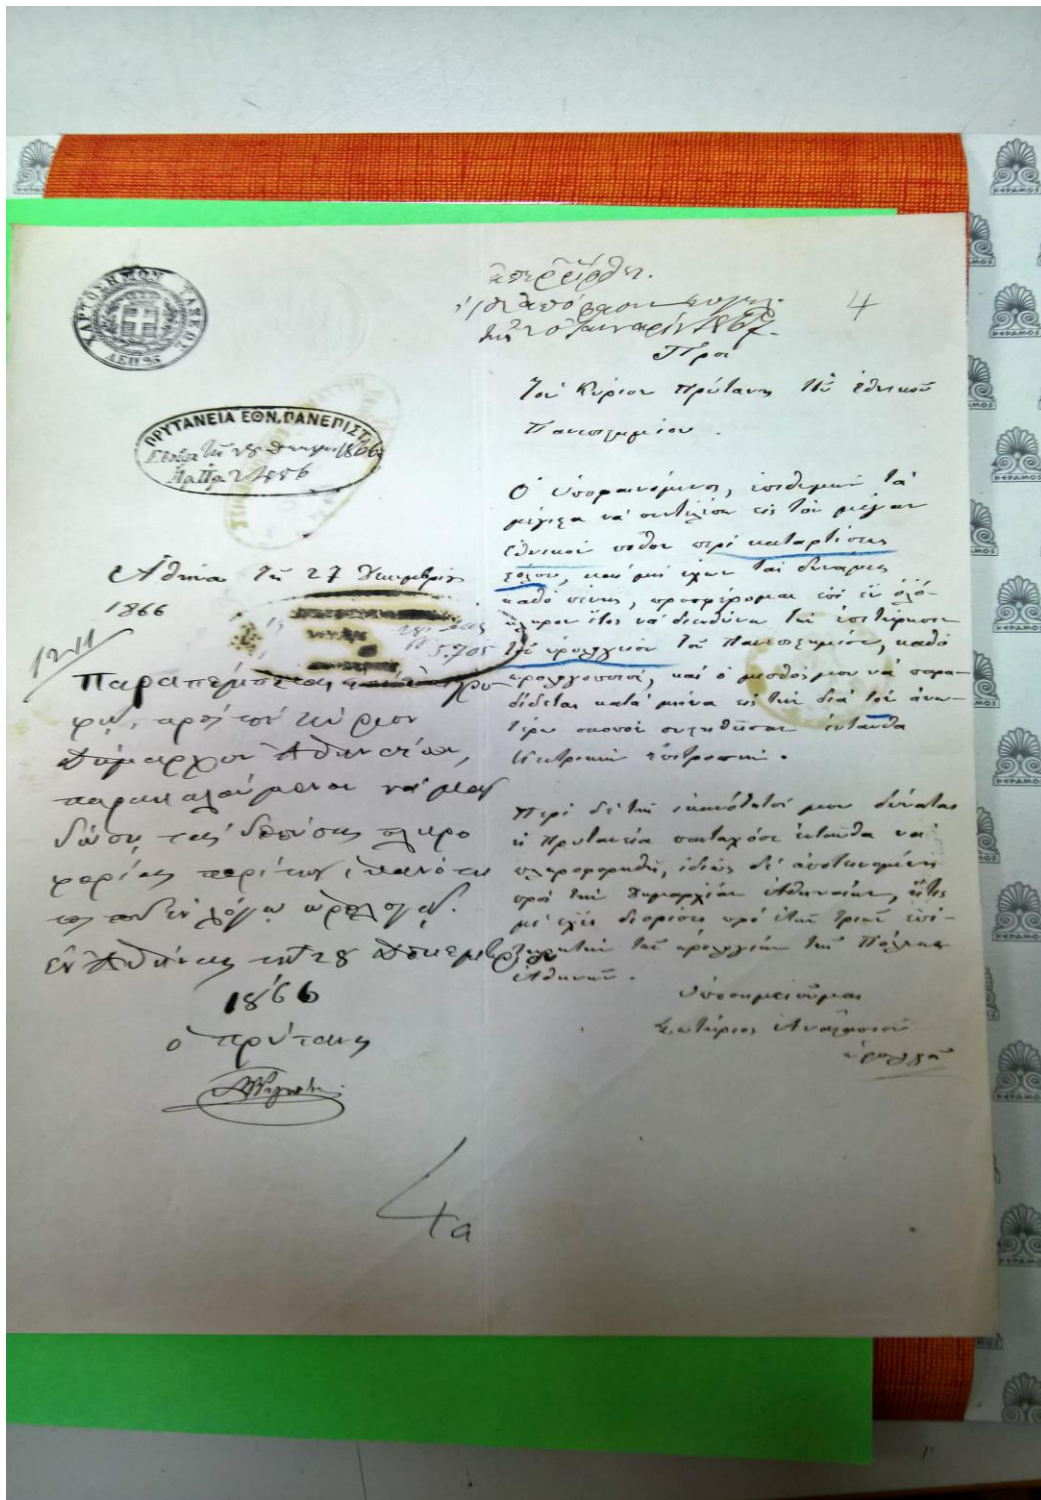 ΧΑΡΤΟΣΗΜΟΝ ΤΑΚΤΟΥ
ΛΕΠ 25
ΠΡΥΤΑΝΕΙΑ ΕΘΝ. ΠΑΝΕΠΙΣΤ
τῇ 28 1866
Ἀθῆναι τῇ 27 Δεκεμβρίου
1866
5.705
Παραπέμπεται
πρὸς τὸν κύριον
Δήμαρχον Ἀθηναίων,
παρακαλούμενον νὰ μας
δώσῃ τὰς δεούσας πληρο
φορίας περὶ τῆς ἱκανότη
τος τοῦ ἐν λόγῳ ὡρολογᾶ.
ἐν Ἀθήναις τῇ 28 Δεκεμβρίου
1866
ὁ πρύτανις
4
ἀπερρίφθη.
ἀπόφασιν
Ἰανουαρίου 1867.
Πρὸς
Τὸν Κύριον Πρύτανιν τοῦ ἐθνικοῦ
Πανεπιστημίου.
Ὁ ὑποφαινόμενος, ἐπιθυμῶν τὰ
μέγιστα νὰ συντελέσω εἰς τὸν μέγαν
ἐθνικὸν πόθον περὶ καταρτίσεως
στόλου, καὶ μὴ ἔχων τὰς δυνάμεις
καθὸ πένης, προσφέρομαι ἐπὶ ἓν ὁλό-
κληρον ἔτος νὰ διευθύνω τὴν ἐπιτήρησιν
τοῦ ὡρολογίου τοῦ Πανεπιστημίου, καθὸ
ὡρολογοποιός, καὶ ὁ μισθός μου νὰ παρα-
δίδεται κατὰ μῆνα εἰς τὴν διὰ τὸν ἀνω-
τέρω σκοπὸν συστηθεῖσαν ἐνταῦθα
Κεντρικὴν ἐπιτροπήν.
Περὶ δὲ τῆς ἱκανότητός μου δύναται
ἡ Πρυτανεία πανταχόθεν ἐνταῦθα νὰ
πληροφορηθῇ, ἰδίως δὲ ἀποτεινομένη
πρὸς τὴν Δημαρχίαν Ἀθηναίων, ἥτις
μὲ εἶχε διορίσει πρὸ ἐτῶν τριῶν ἐπι-
τηρητὴν τῶν ὡρολογίων τῆς Πόλεως
Ἀθηνῶν.
Ὑποσημειοῦμαι
Σωτήριος
ὡρολογᾶς
4α